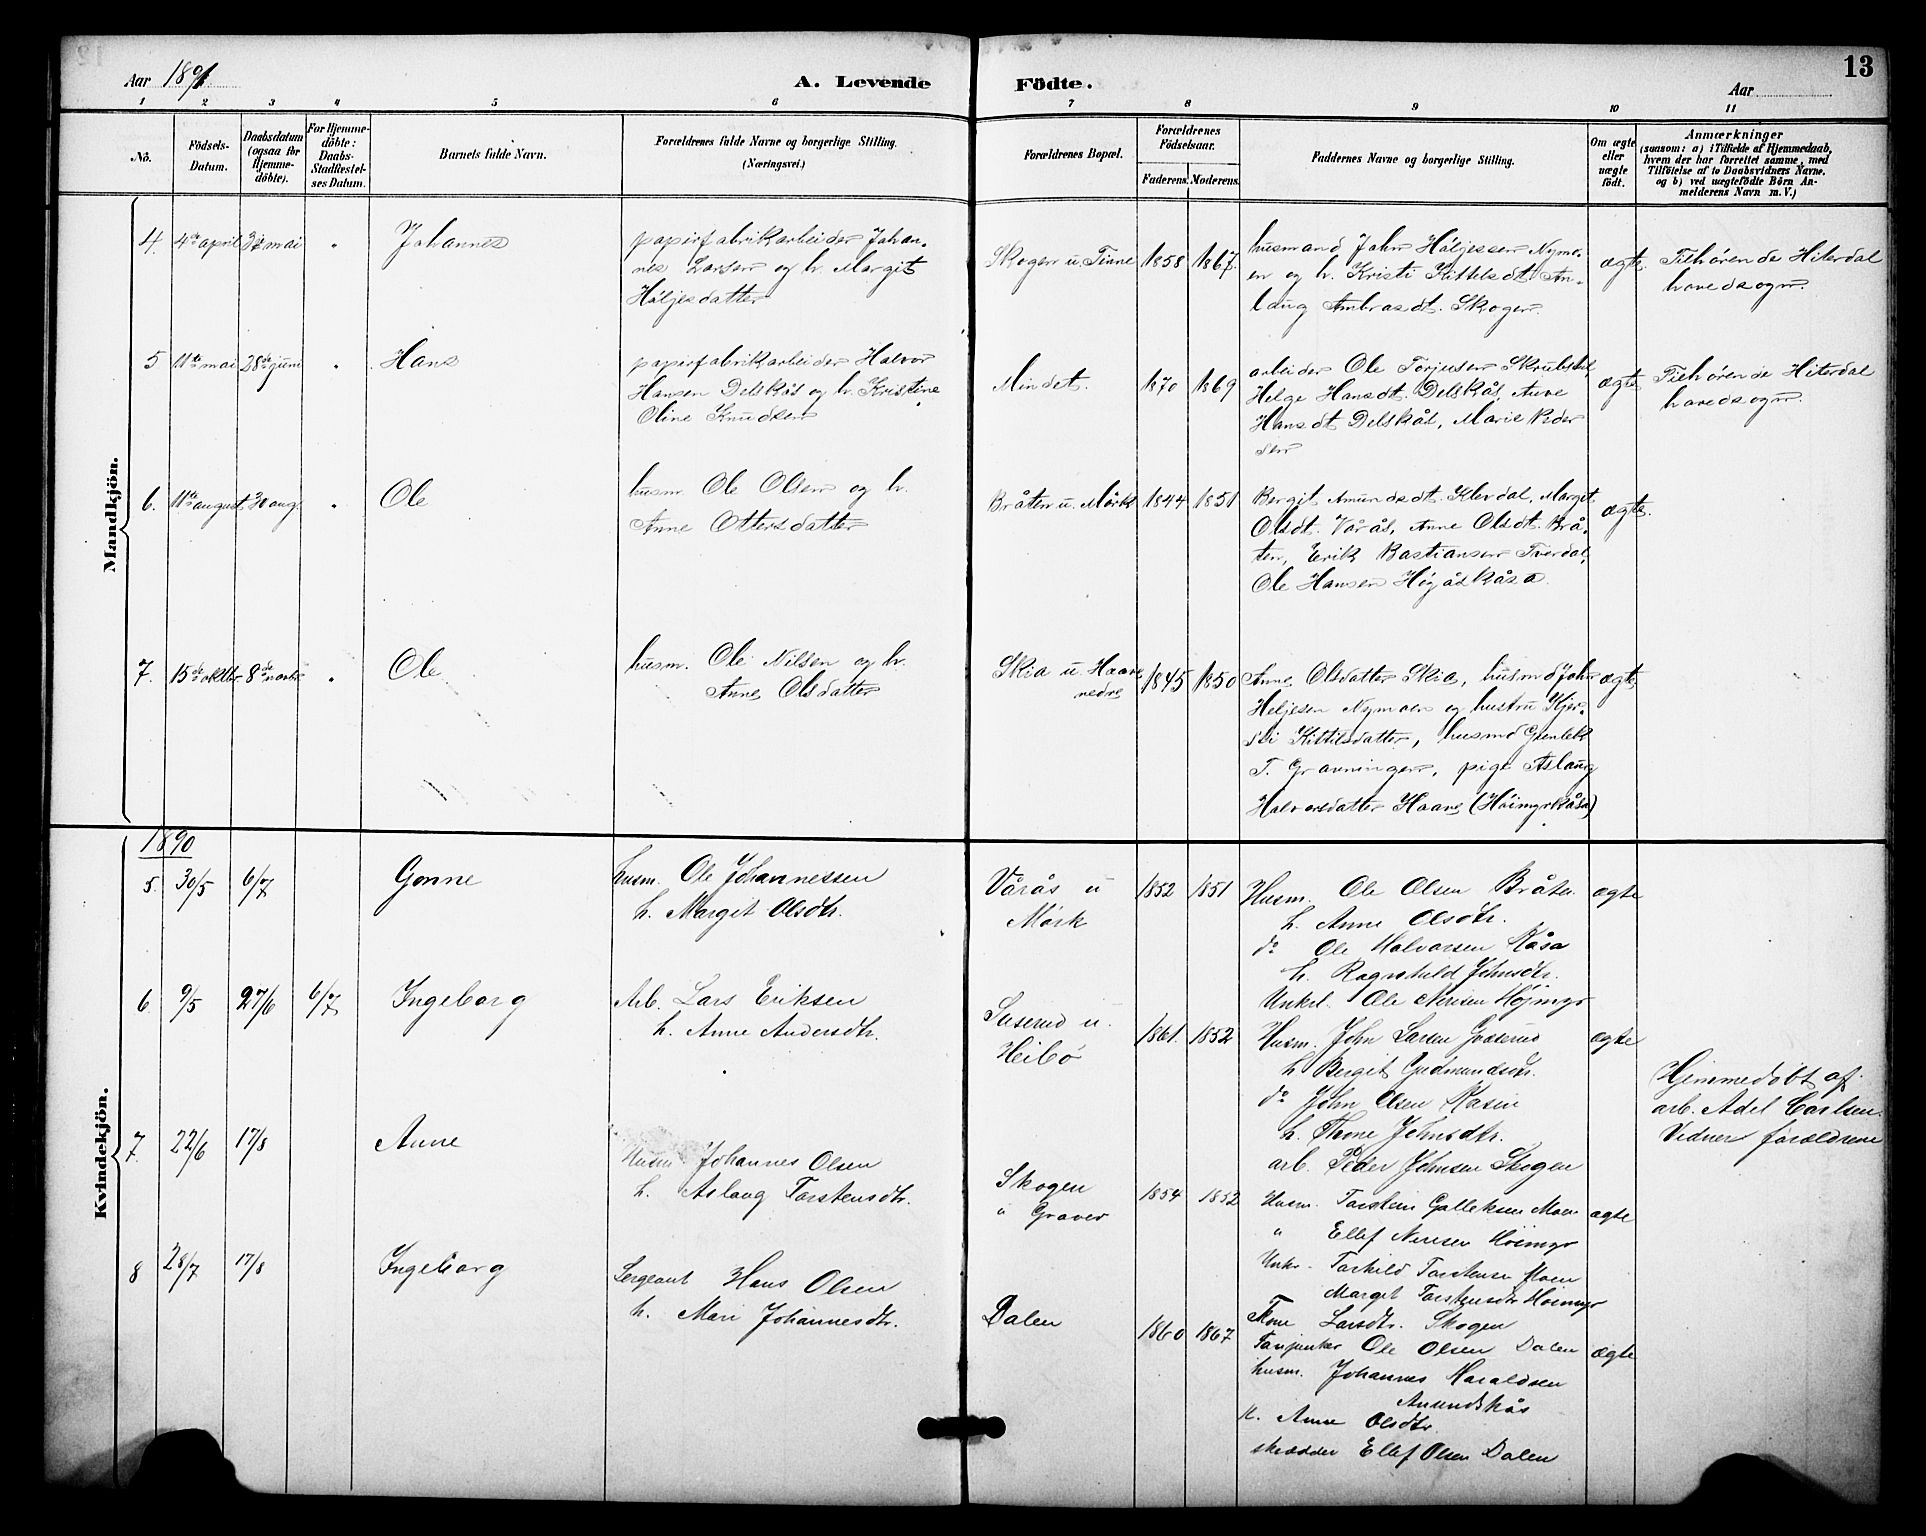 Aar 1891.
A. Levende Födte.
Aar
13
1 2 3 4 5 6 7 8 9 10 11
Nô.
Födsels-
Datum.
Daabsdatum
(ogsaa for
Hjemme-
döbte).
For Hjemme-
döbte:
Daabs-
Stadfæstel-
ses Datum.
Barnets fulde Navn.
Forældrenes fulde Navne og borgerlige Stilling.
(Næringsvei.)
Forældrenes Bopæl.
Forældrenes
Födselsaar.
Faderens. Moderens.
Faddernes Navne og borgerlige Stilling.
Om ægte
eller
uægte
födt.
Anmærkninger
(saasom: a) i Tilfælde af Hjemmedaab,
hvem der har forrettet samme, med
Tilföielse af to Daabsvidners Navne,
og b) ved uægtefödte Börn An-
melderens Navn m. V.)
Mandkjön.
4. 4de april mai " Johannes
papirfabrikarbeider Johan-
nes Larsen og h. Margit
Höljesdatter
Skogen u. Tinne 1858 1867.
husmand John Höljessen Nymo-
en og h. Kristi Kittilsdt. As-
laug Ambrosdt. Skogen
ægte.
Tilhörende Hiterdal
hovedsogn.
5 11te mai 28de juni " Hans
papirfabrikarbeider Halvor
Hansen Delskås og h. Kristine
Oline Knudsen
Mindet. 1870 1869
arbeider Ole Torjusen
Helge Hansdt. Delskås, Anne
Hansdt Delskås, Marie Peder
sen
ægte
Tilhörende Hiterdal
hovedsogn.
6. 11te august 30 aug. " Ole
husm. Ole Olsen og h.
Anne Ottersdatter
Bråten u. Mörk 1844 1851
Bergit Amundsdt. Klevdal, Marget
Olsdt. Vårås, Anne Olsdt. Brå-
ten, Erik Bastiansen Tverdal,
Ole Hansen Högåskåsa.
ægte.
7. 15de oktbr. 8de novbr " Ole
husm. Ole Nilsen og h.
Anne Olsdatter
Skia u. Haave
nedre
1845 1850
Anne Olsdatter Skia, husmd John
Heljesen Nymoen og hustru Kjer-
sti Kittilsdatter, husmd Gunleik
T. Gravningen, pige Aslaug
Halvorsdatter Haave (Höimyrkåsa)
ægte
Kvindekjön.
1890
5. 30/5 6/7 Gonne
husm. Ole Johannessen
h. Margit Olsdtr.
Vårås u
Mörk
1852 1851
Husm. Ole Olsen Bråten
h. Anne Olsdtr.
do Ole Halvorsen Kåsa
h. Ragnhild Johnsdtr.
Unkrl. Ole Nerisen Höjmyr
ægte
6 9/5 27/6 6/7 Ingeborg
Arb. Lars Eriksen
h. Anne Andersdtr.
Suserud u.
Heibö
1861. 1852
Husm. John Larsen
h Bergit Gudmundsdtr.
do John Olsen Kasin
h. Thone Johnsdtr.
arb. Peder Johnsen Skogen
ægte
Hjemmedöbt af
arb. Adel Carlsen.
Vidner forældrene
7. 22/6 17/8 Anne
Husm. Johannes Olsen
h. Aslaug Torstensdtr.
Skogen
" Graver
1854 1852
Husm. Torstein Gulleksen Moen
" Ellef Nerisen Höimyr
Unkr. Torkild Torstensen Moen
Marget Torstensdtr Höimyr
Thone Larsdtr. Skogen
ægte
8 28/7 17/8 Ingeborg
Sergeant Hans Olsen
h. Mari Johannesdtr.
Dalen
1860 1867
Ole Olsen Dalen
husm. Johannes Haraldsen
Amundskås
h. Anne Olsdtr.
skrædder Ellef Olsen Dalen
ægte